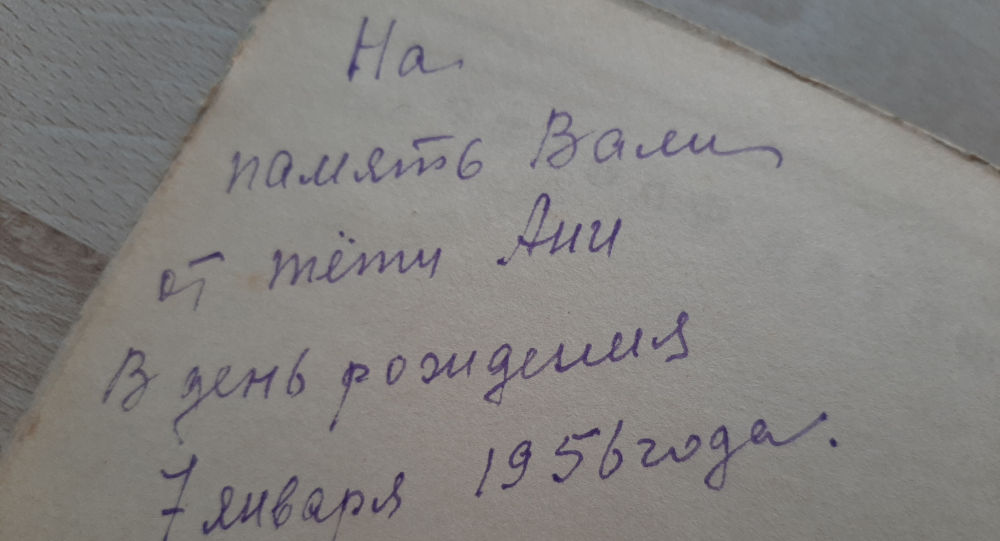 На
память Вали
от тёти Ани
В день рождения
7 января 1956 года.